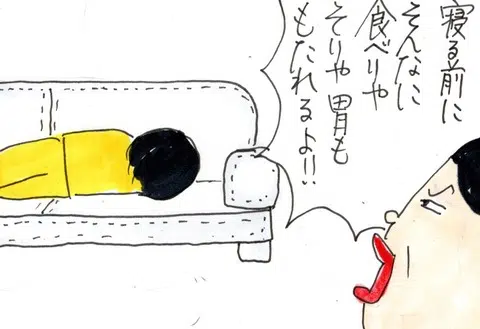 寝る前に
そんなに
食べりや
そりや胃も
もたれるよ!!